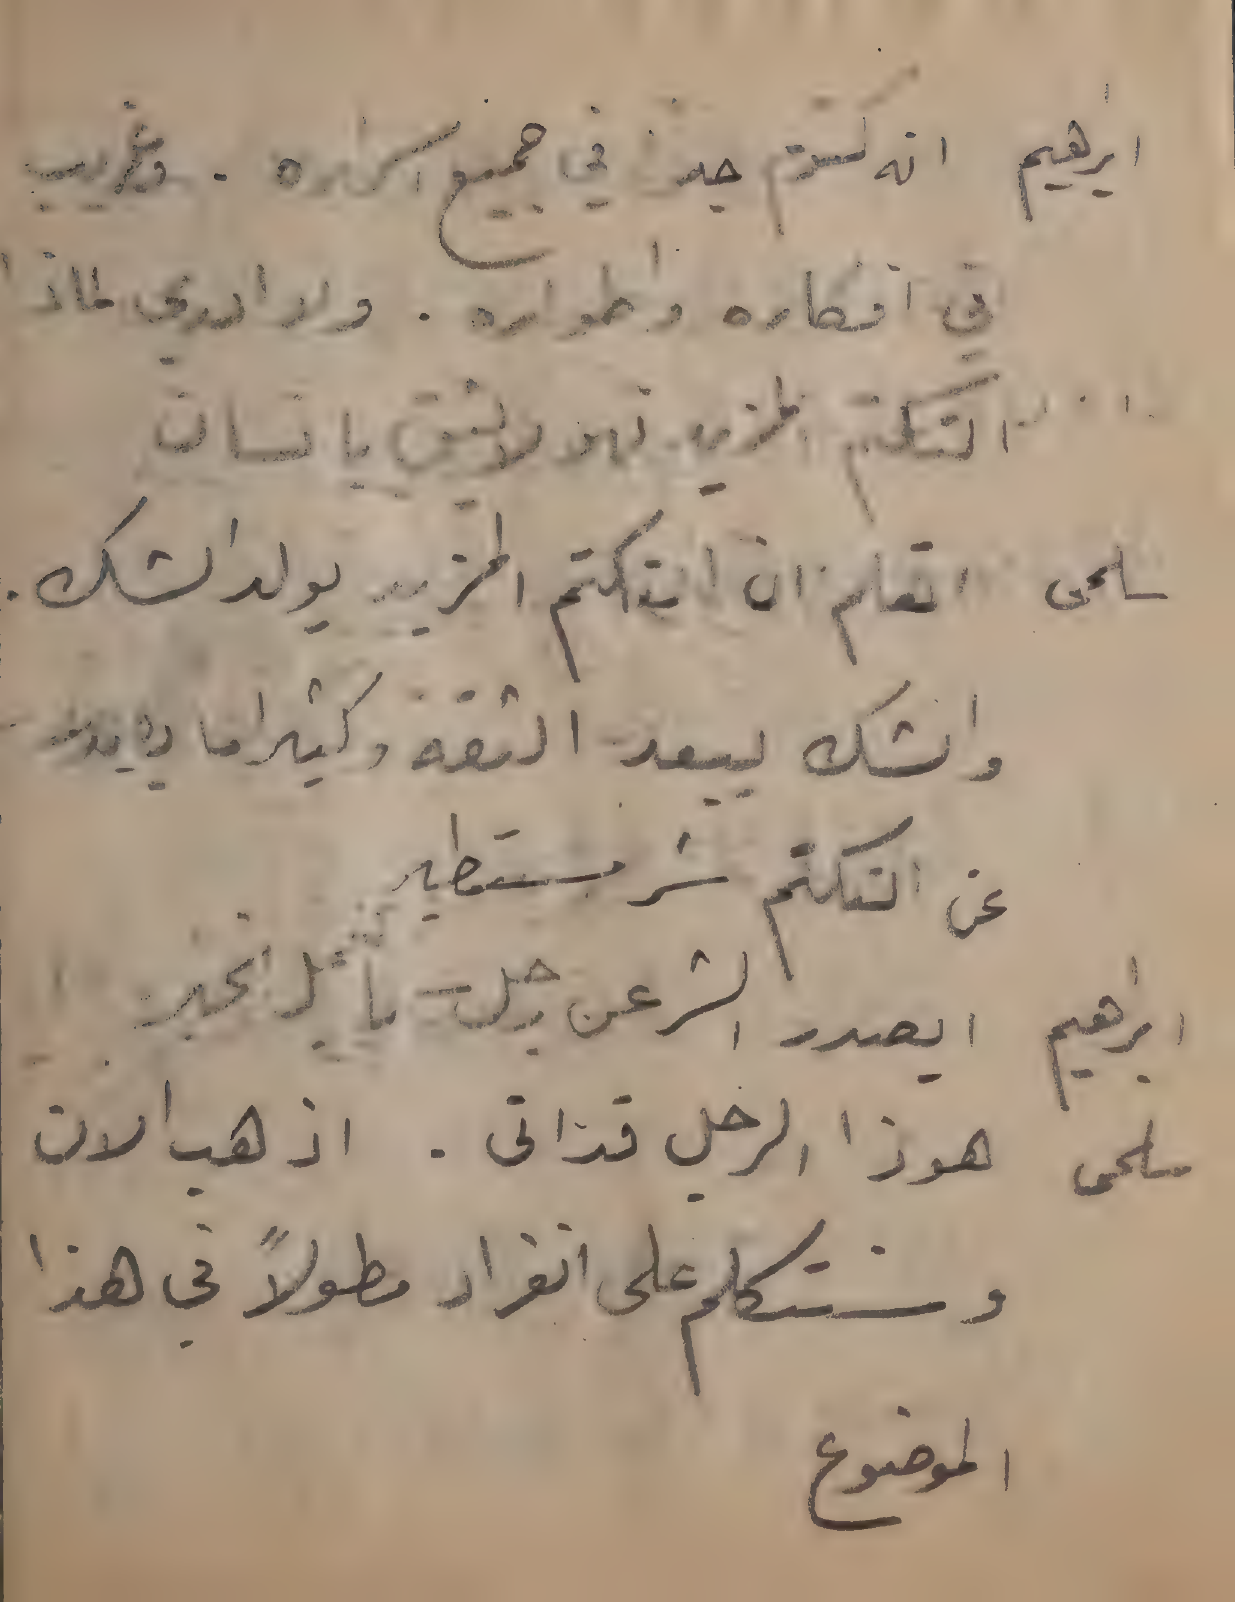 ابرهيم انه كتوم جداً في جميع اسراره . وغريب
في افكاره واطواره . ولا ادري لماذا
التكتم المزيد فهو لا يثق بانسان
سلمى اتعلم ان التكتم المزيد يولد الشك .
والشك يبعد الثقة وكثيراما
عن التكتم شر مستطير
ابرهيم ايصدر الشر عن رجل
سلمى هوذا الرجل قد اتى . اذهب الان
وسنتكلم على انفراد مطولاً في هذا
الموضوع